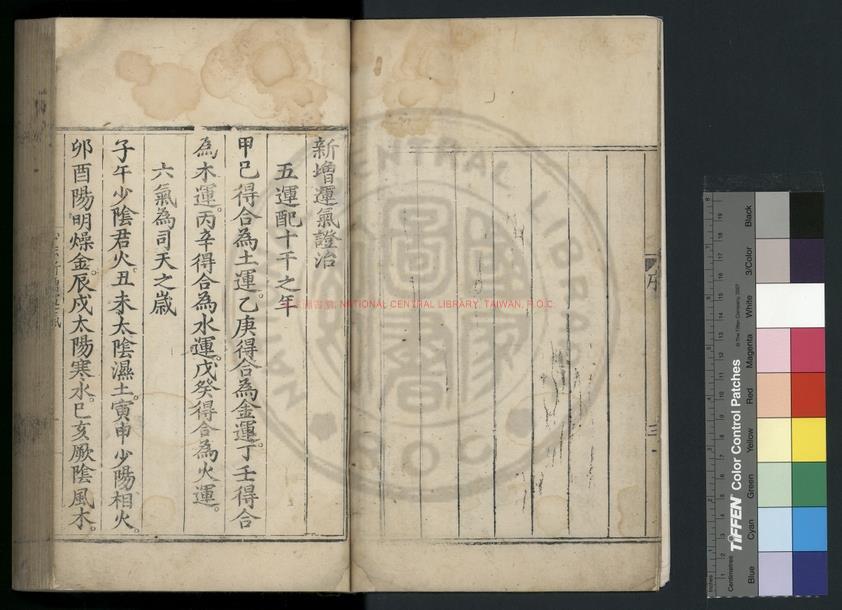 序
三
新增運氣證治
五運配十干之年
甲巳得合為土運。乙庚得合為金運。丁壬得合
為木運。丙辛得合為水運。戊癸得合為火運。
六氣為司天之歲
子午少陰君火。丑未太陰濕土。寅申少陽相火。
卯酉陽明燥金。辰戌太陽寒水。巳亥厥陰風木。
NATIONAL CENTRAL LIBRARY, TAIWAN, R.O.C.
TIFFEN Color Control Patches
© The Tiffen Company, 2007
Centimetres
Blue
Cyan
Green
Yellow
Red
Magenta
White
3/Color
Black